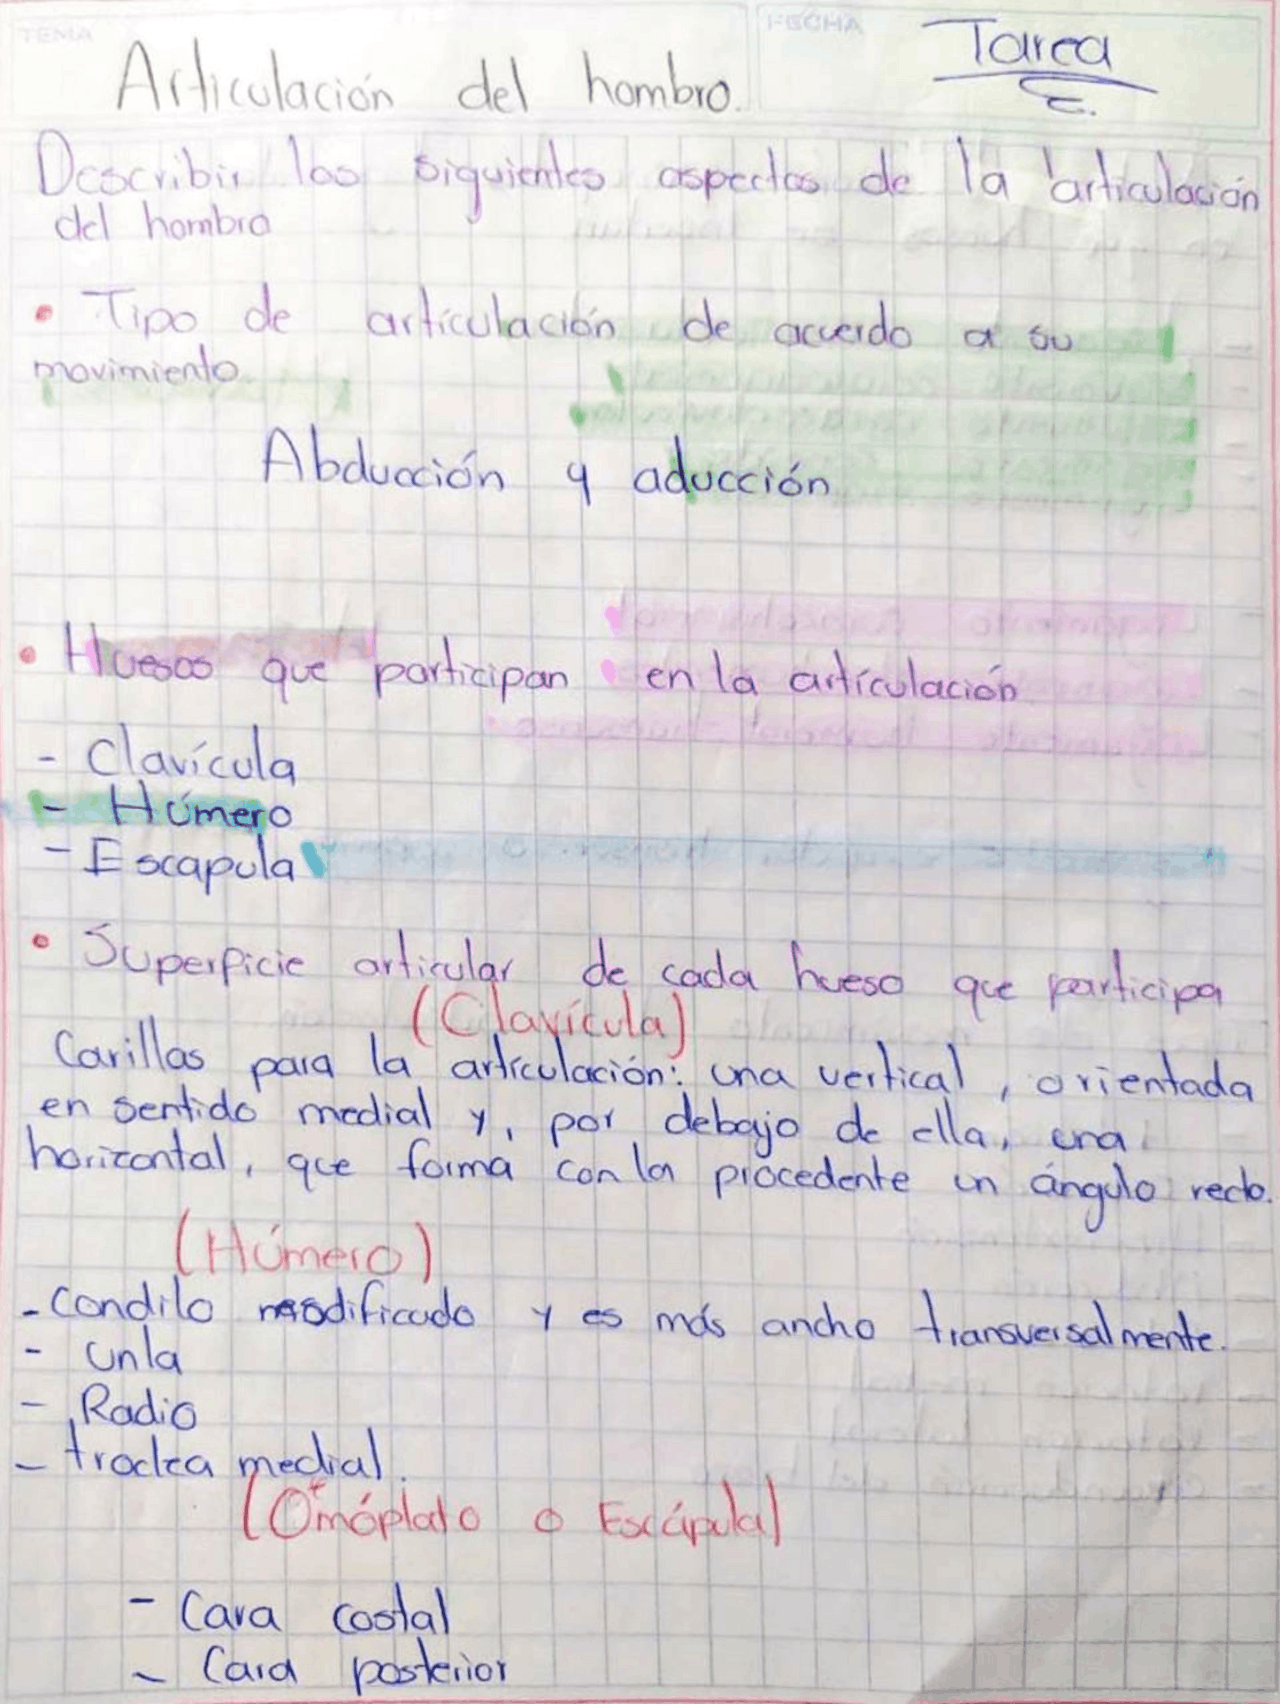 TEMA
FECHA
Tarea
Articulación del hombro.
Describir los siguientes aspectos de la articulación
del hombro
• Tipo de articulación de acuerdo a su
movimiento
Abducción y aducción
• Huesos que participan en la artículación
- Clavícula
- Húmero
- Escapula
• Superficie articular de cada hueso que participa
(Clavícula)
Carillas para la artículación: una vertical, orientada
en sentido medial y, por debajo de ella, una
horizontal, que forma con la procedente un ángulo recto.
(Húmero)
- Condilo modificado y es más ancho transversalmente.
- Unla
- Radio
- troclea medial.
(Omóplato o Escápula)
- Cara costal
- Cara posterior